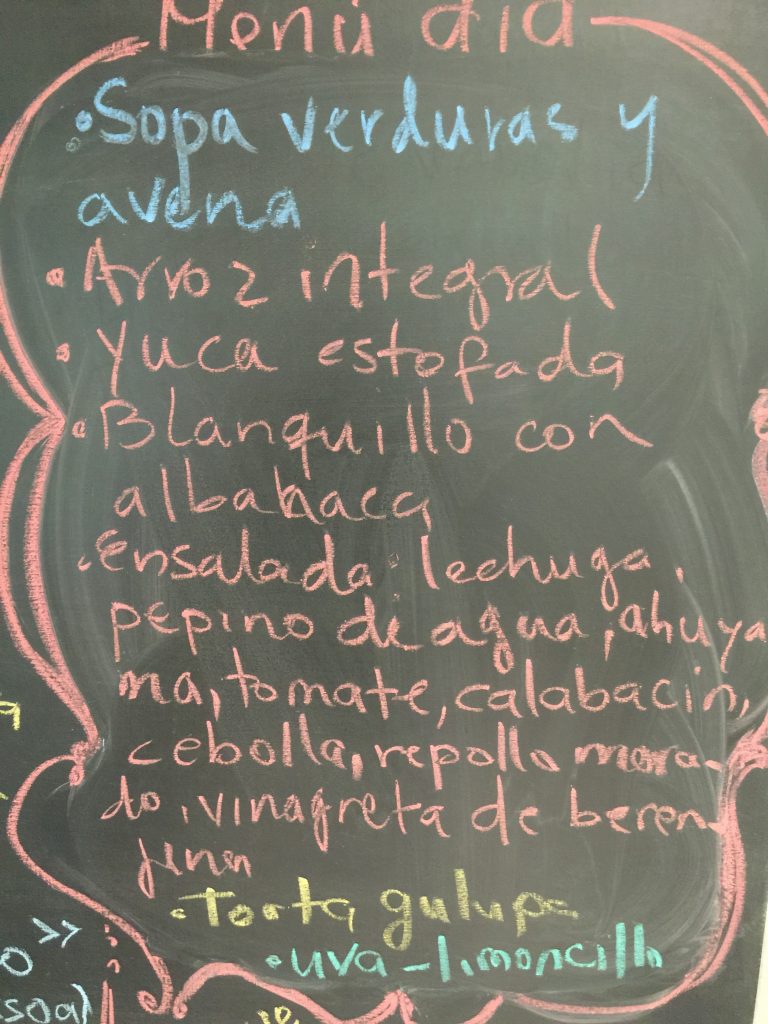 Menú día
• Sopa verduras y
avena
• Arroz integral
• Yuca estofada
• Blanquillo con
albahaca
• Ensalada: lechuga,
pepino de agua, ahuya
ma, tomate, calabacín,
cebolla, repollo mora-
do, vinagreta de beren-
jena
• Torta gulupa
• uva - limoncillo